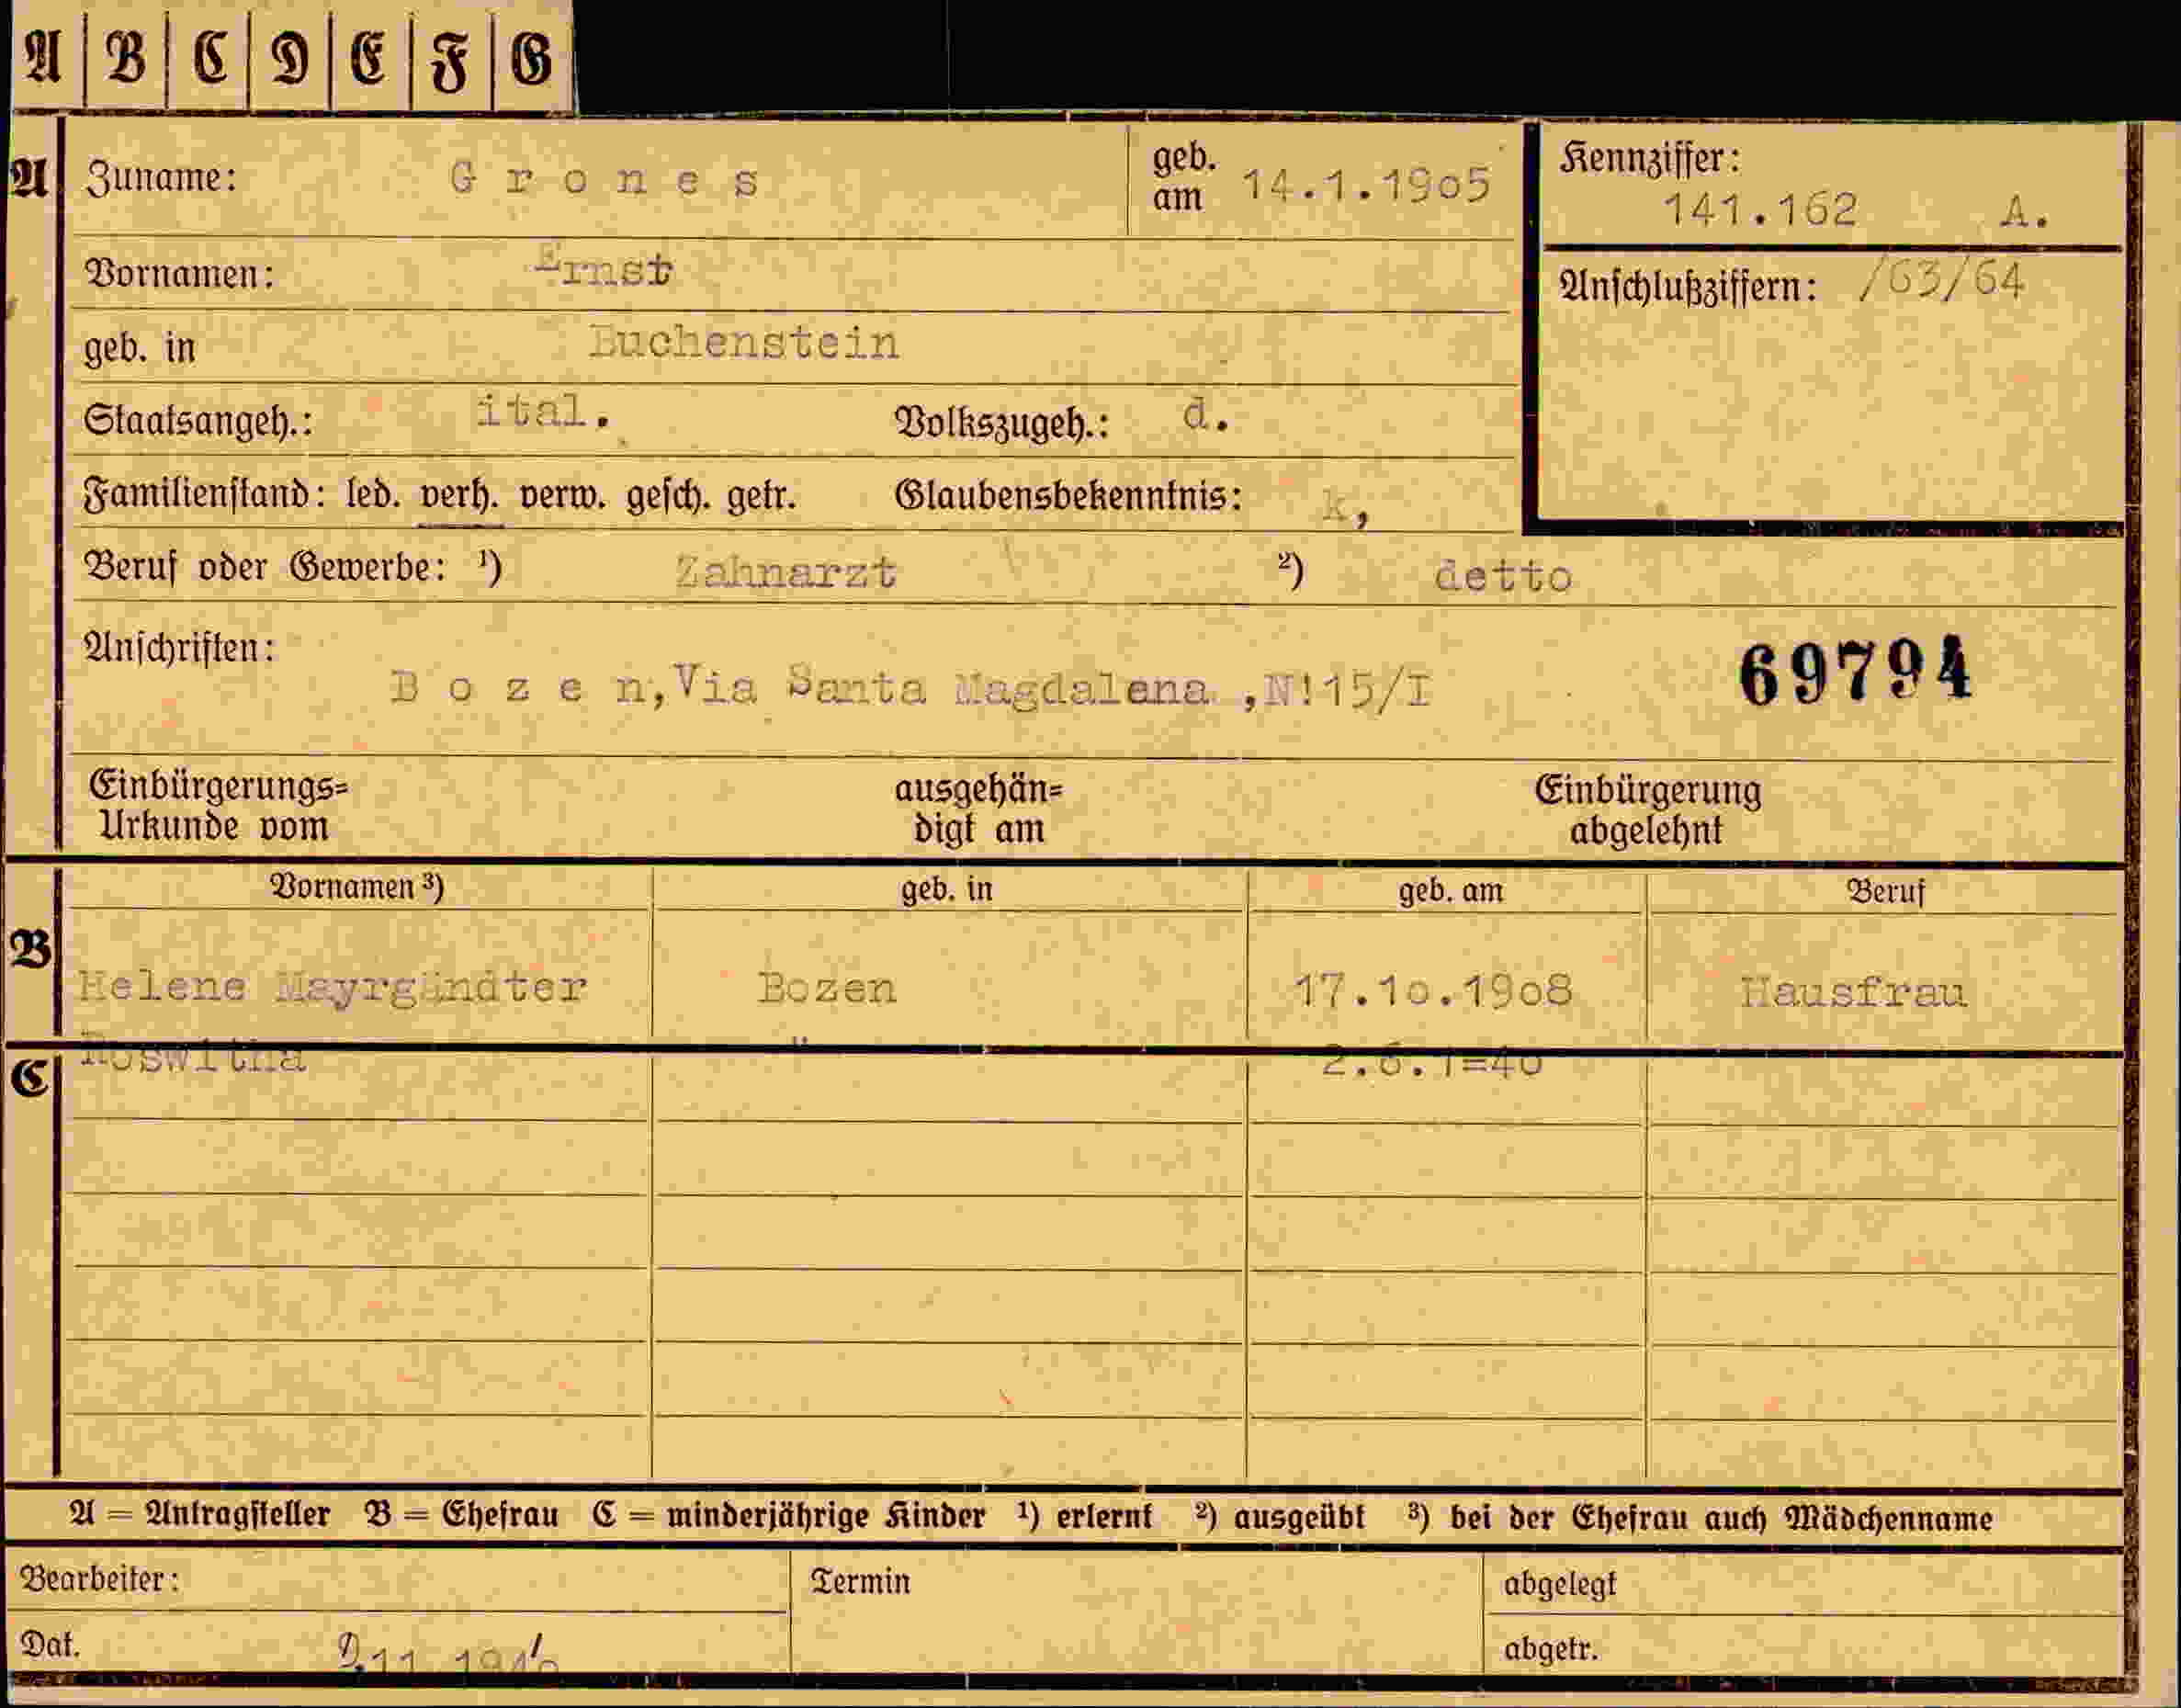 A B C D E F G
A Zuname: Grones geb. am 14.1.1905 Kennziffer: 141.162 A.
Vornamen: Ernst Anschlußziffern: /63/64
geb. in Buchenstein
Staatsangeh.: ital. Volkszugeh.: d.
Familienstand: led. verh. verw. gesch. getr. Glaubensbekenntnis: k,
Beruf oder Gewerbe: ¹) Zahnarzt ²) detto
Anschriften: 69794
Bozen, Via Santa Magdalena ,N!15/I
Einbürgerungs= ausgehän= Einbürgerung
Urkunde vom digt am abgelehnt
Vornamen ³) geb. in geb. am Beruf
B Helene Mayrgündter Bozen 17.10.1908 Hausfrau
C Roswitha "
A = Antragsteller B = Ehefrau C = minderjährige Kinder ¹) erlernt ²) ausgeübt ³) bei der Ehefrau auch Mädchenname
Bearbeiter: Termin abgelegt
Dat. abgetr.